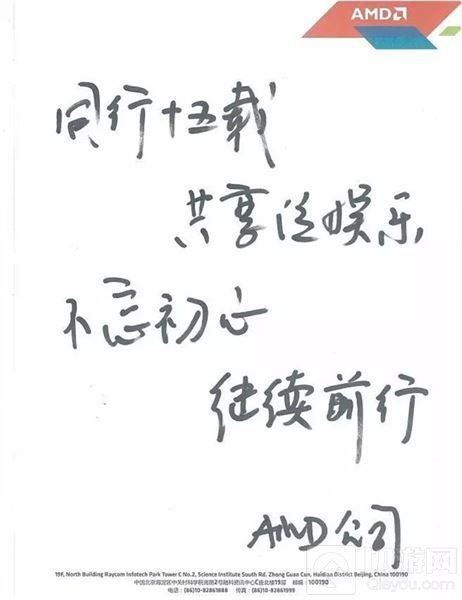 AMD
同行十五载
共享泛娱乐
不忘初心
继续前行
AMD公司
19F, North Building Raycom Infotech Park Tower C No.2, Science Institute South Rd. Zhong Guan Cun, Haidian District Beijing, China 100190
中国北京海淀区中关村科学院南路2号融科资讯中心C座北楼19层 邮编：100190
电话：(86)10-82861888 传真：(86)10-82861999
游网
Qleyou.com